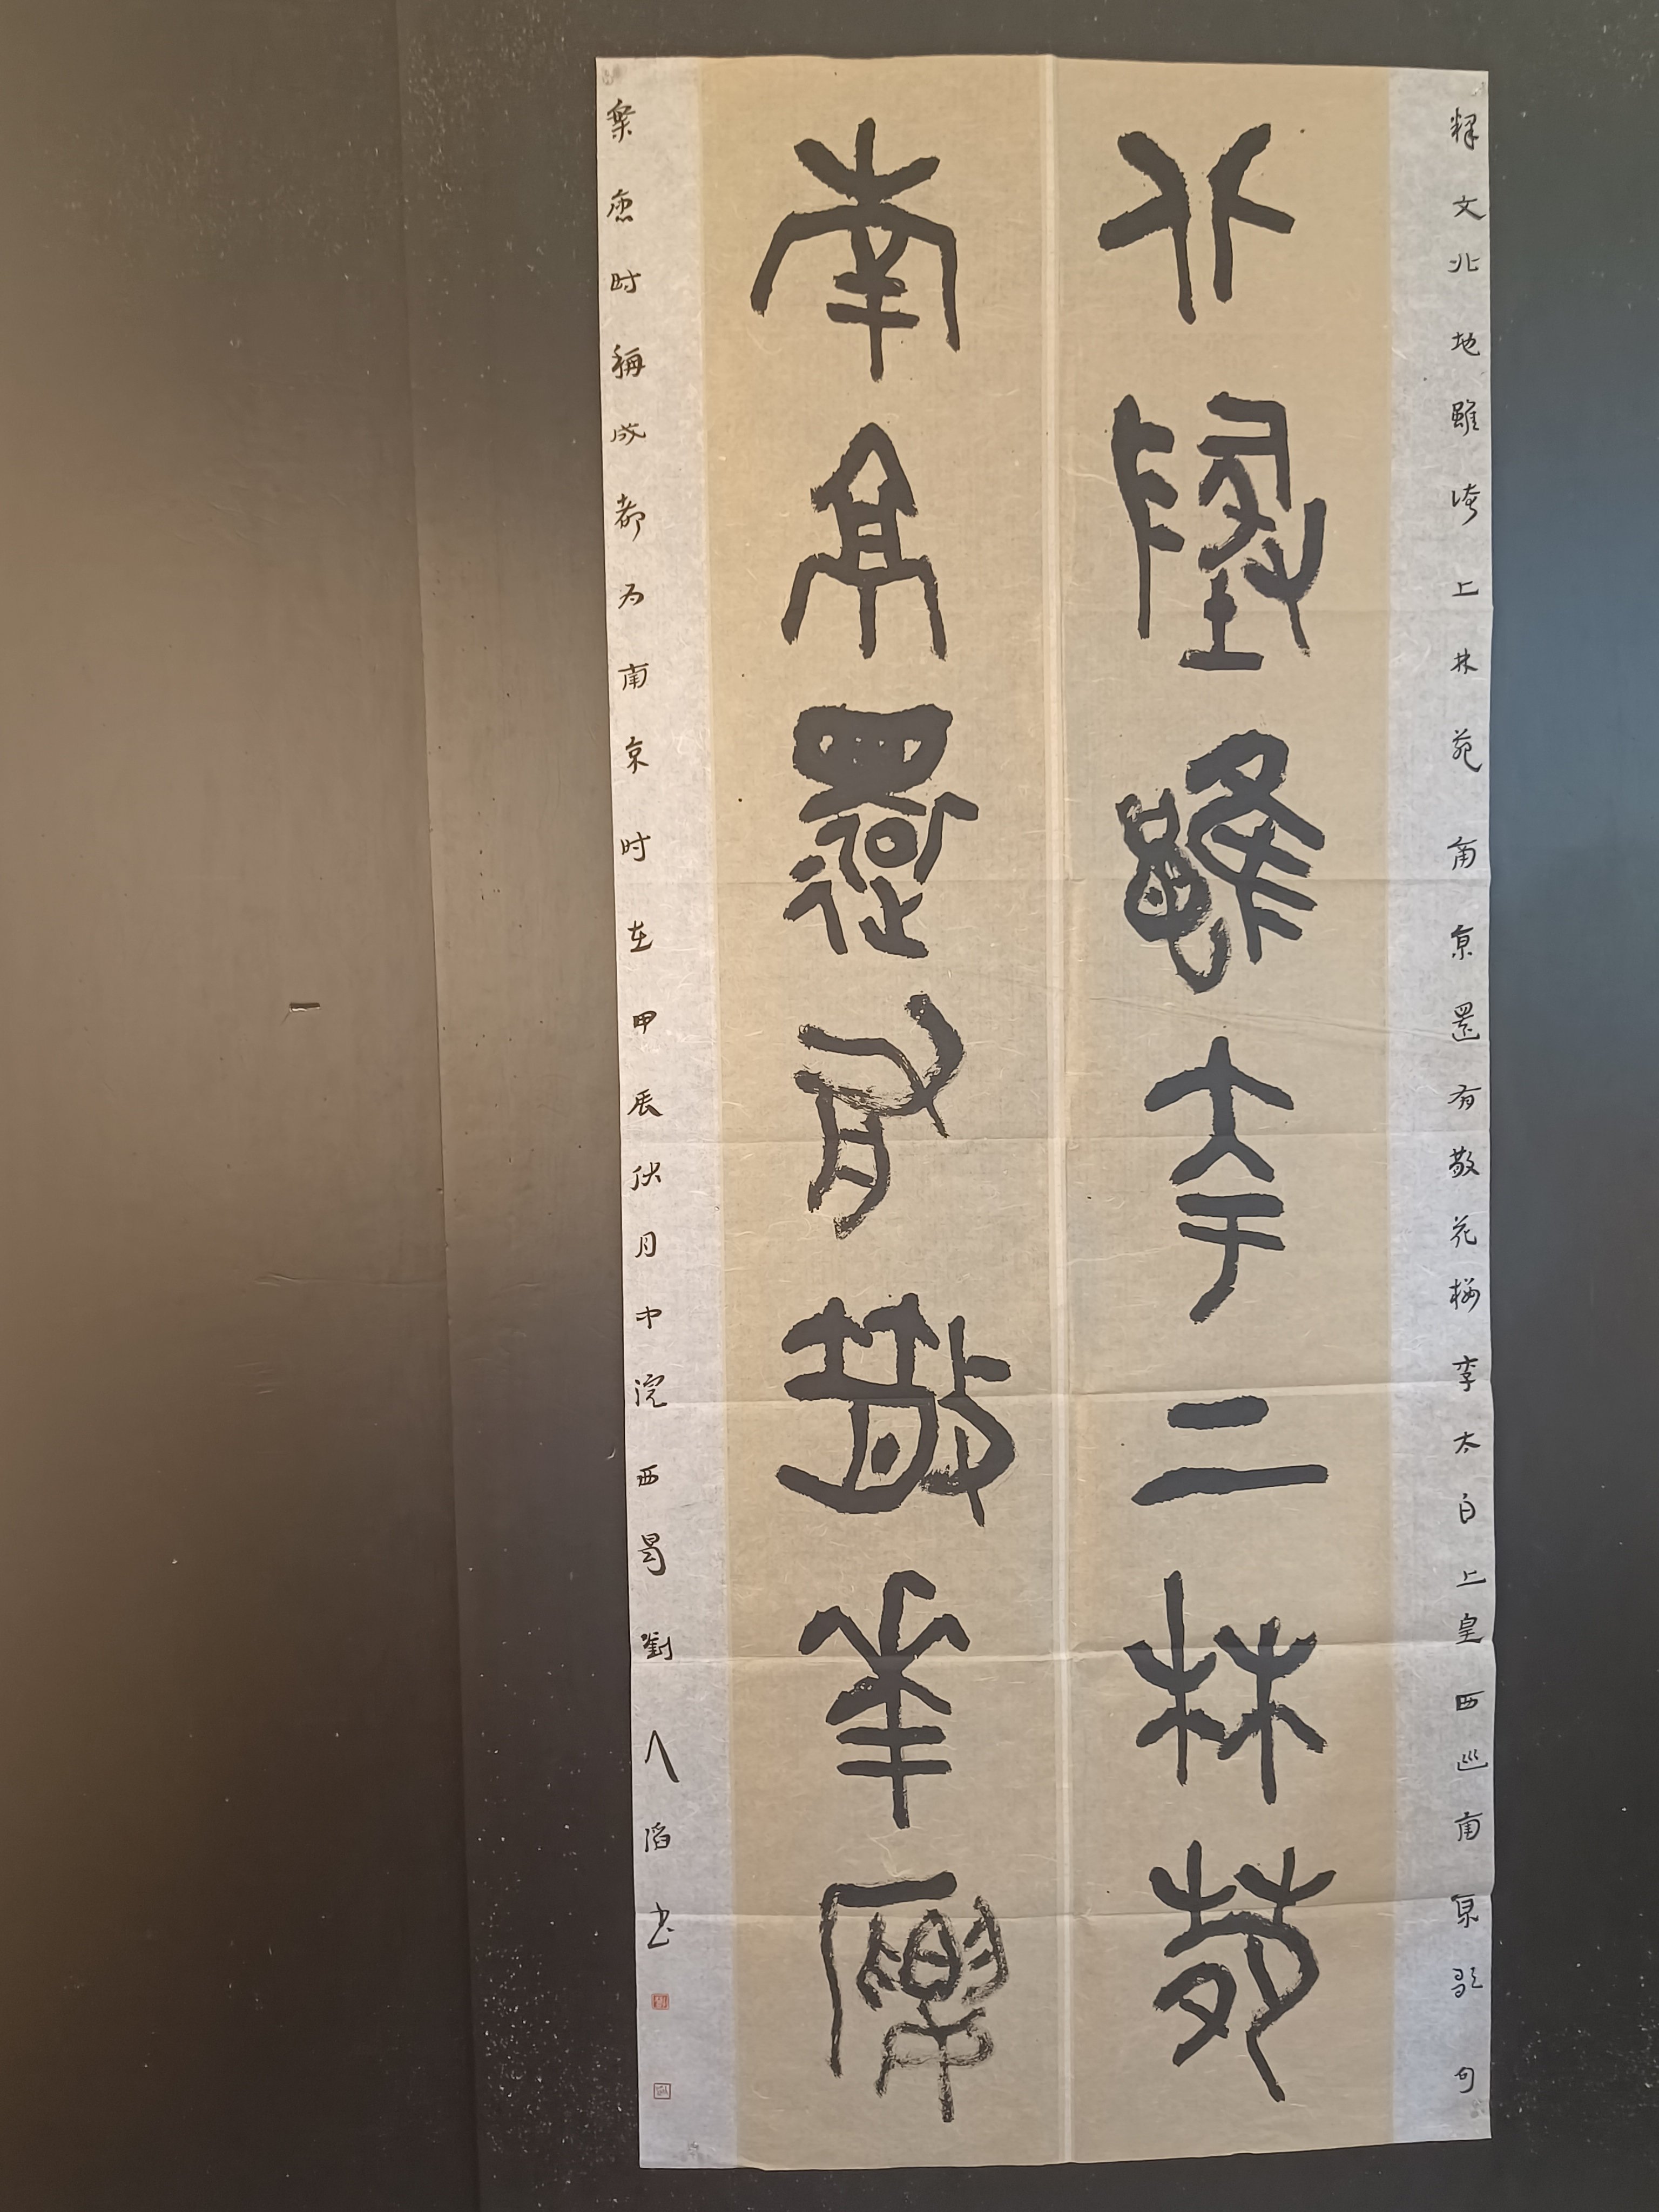 释文北地雖誇上林苑南京還有散花楼李太白上皇西巡南京歌句
北地雖夸上林苑
南京還有散華廔
案时稱成都为南京时在甲辰伏月中浣西蜀劉人滔书